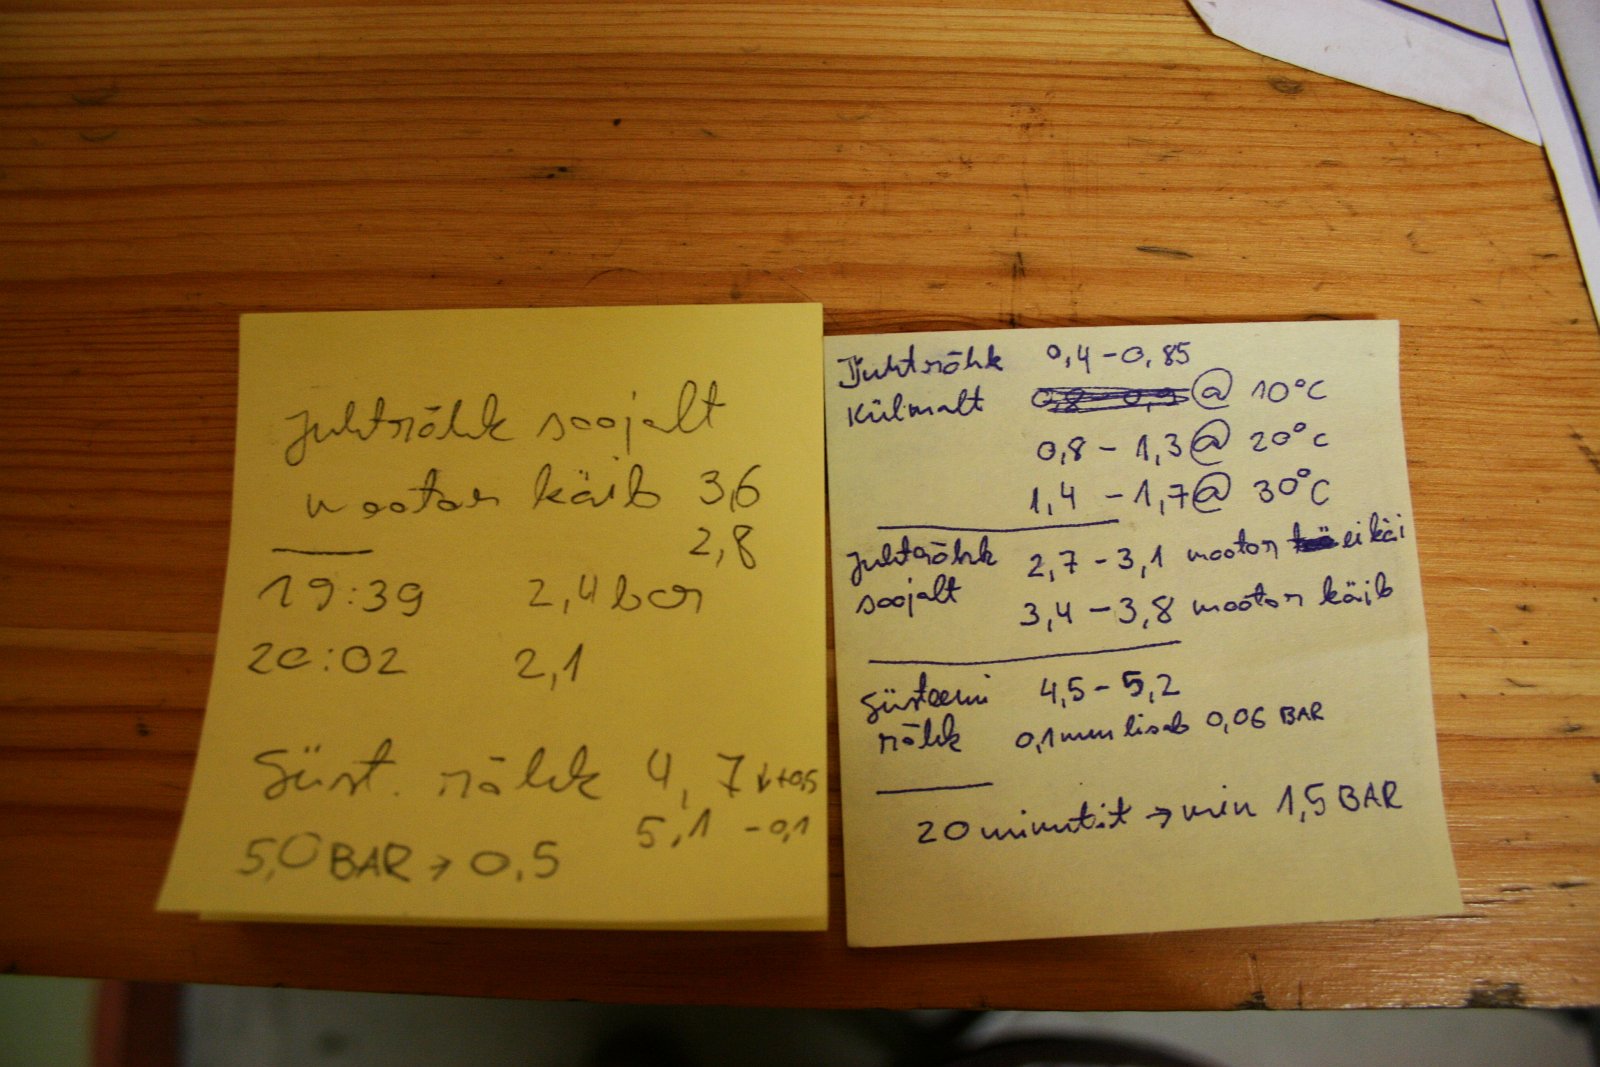 Juhtrõhk soojalt
mootor käib 3,6
2,8
19:39 2,4 bar
20:02 2,1
Süst. rõhk 4,7 ↓+0,5
5,1 -0,1
5,0 BAR → 0,5
Juhtrõhk 0,4 - 0,85
Külmalt @ 10°C
0,8 - 1,3 @ 20°C
1,4 - 1,7 @ 30°C
Juhtrõhk 2,7 - 3,1 mootor ei käi
soojalt 3,4 - 3,8 mootor käib
Süsteemi 4,5 - 5,2
rõhk 0,1mm lisab 0,06 BAR
20 minutit → min 1,5 BAR